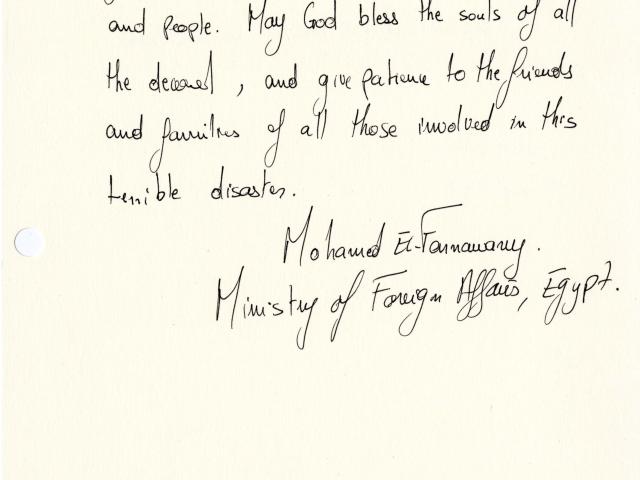 and people. May God bless the souls of all
the deceased, and give patience to the friends
and families of all those involved in this
terrible disaster.
Mohamed El-
Ministry of Foreign Affairs, Egypt.